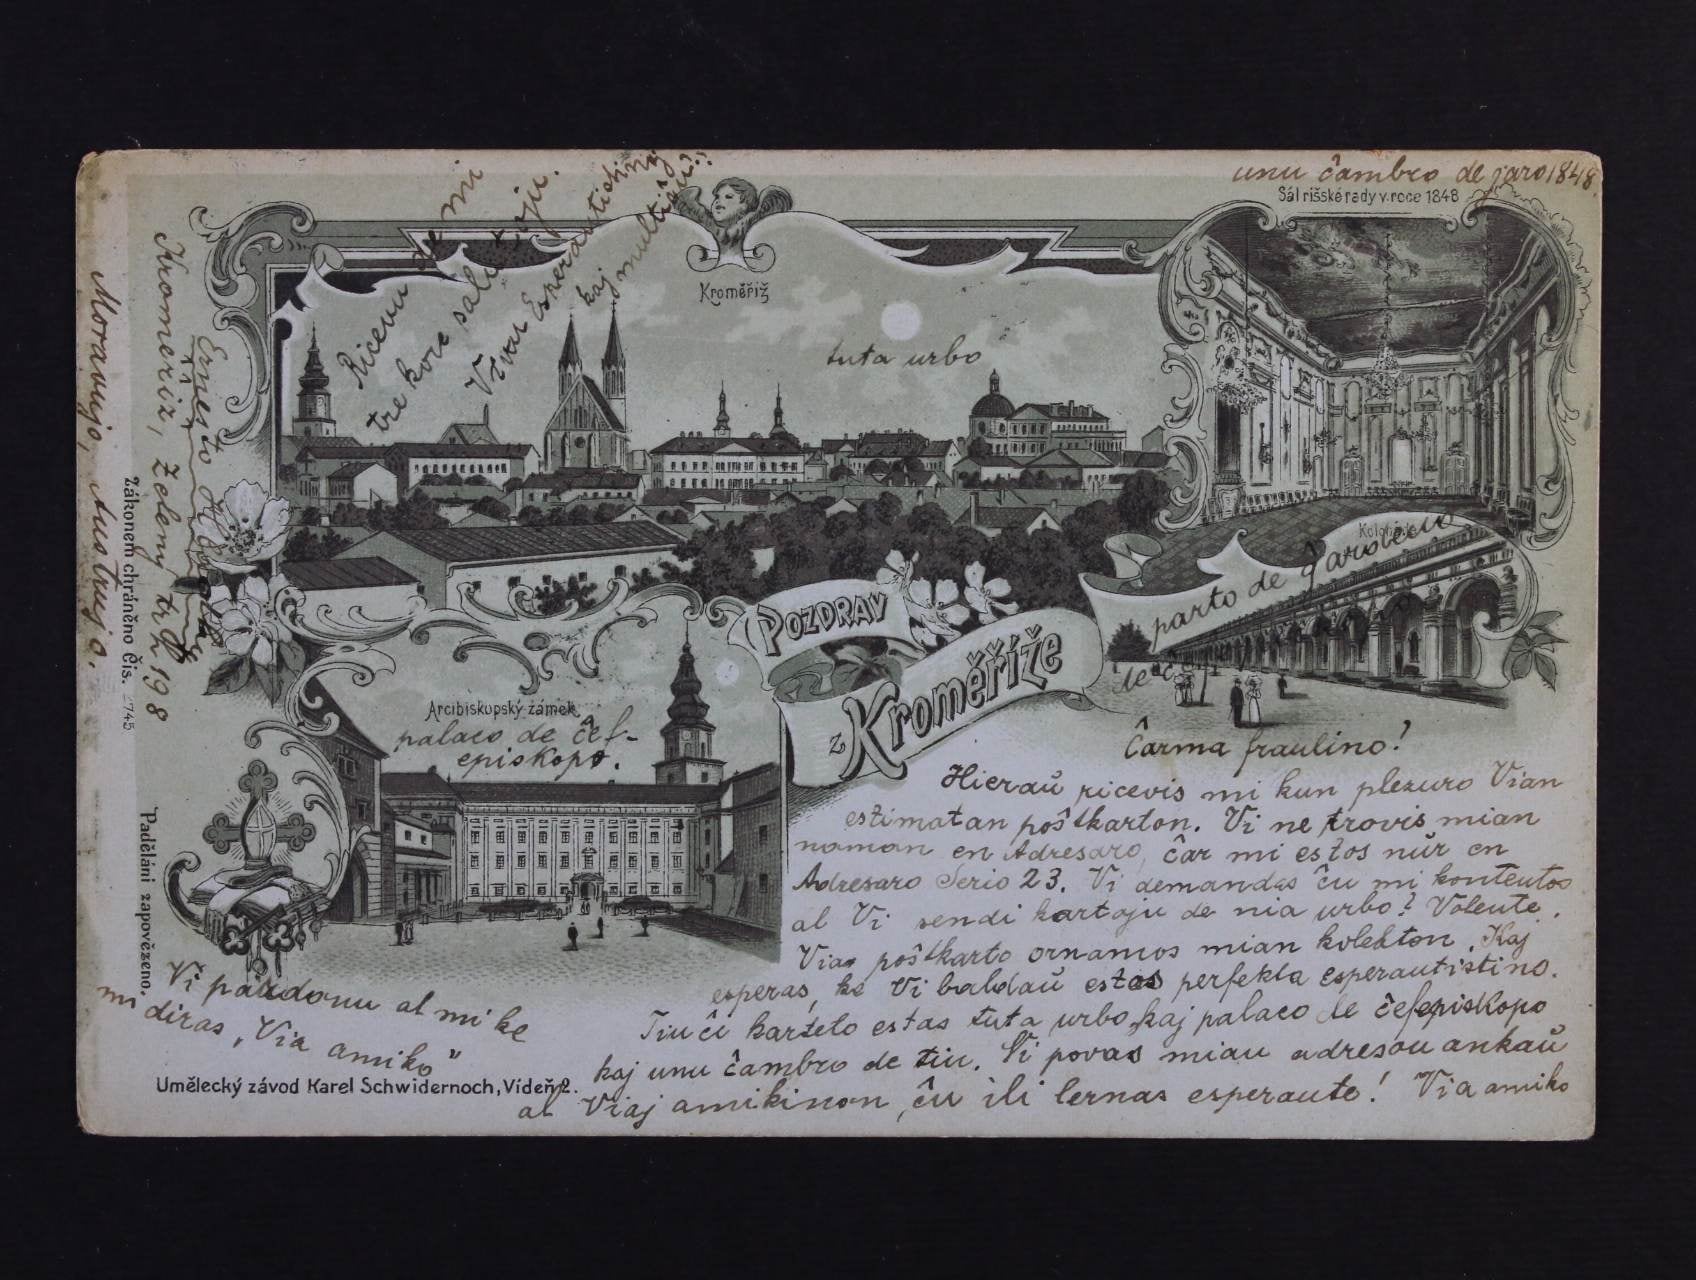 unu ĉambro de jaro 1848.
Sál říšské rady v roce 1848
Kroměříž
Ricevu de mi
tre kore salutoju.
Ĉu kaj multiaŭ??
tuta urbo
parto de ĝardeno
POZDRAV
z Kroměříže
Arcibiskupský zámek
palaco de ĉef-
episkopo.
Ĉarma fraulino!
Hieraŭ ricevis mi kun plezuro Vian
estimatan poŝtkarton. Vi ne trovis mian
noman en Adresaro, ĉar mi estos nur en
Adresaro Serio 23. Vi demandas ĉu mi kontentos
al Vi sendi kartoju de nia urbo? Volente.
Via poŝtkarto ornamos mian kolekton. Kaj
esperas, ke Vi baldaŭ estas perfekta esperantistino.
Tiu ĉi karteto estas tuta urbo, kaj palaco de ĉefepiskopo
kaj unu ĉambro de tiu. Vi povas mian adreson ankaŭ
al Viaj amikinon, ĉu ili lernas esperante! Via amiko
Ernesto
Kromeriz, Zeleny trh 198
Moravujo, Austrujo.
Vi pardonu al mi ke
mi diras „Via amiko"
Zákonem chráněno Čís. 2745
Padělání zapovězeno.
Umělecký závod Karel Schwidernoch, Vídeň 2.